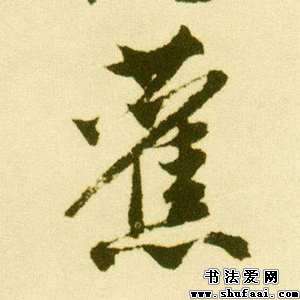 蕉
书法爱网
www.shufaai.com